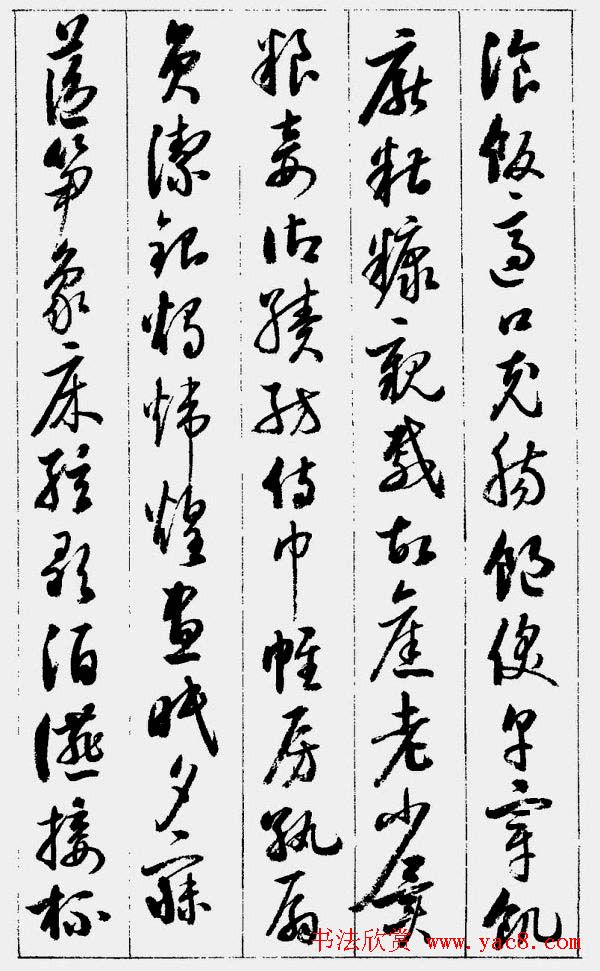 湌飯適口充腸飽飫亨宰飢
厭糟糠親戚故舊老少異
粮妾御績紡侍巾帷房紈扇
員潔銀燭煒煌晝眠夕寐
藍筍象床絃歌酒讌接杯
书法欣赏 www.yac8.com